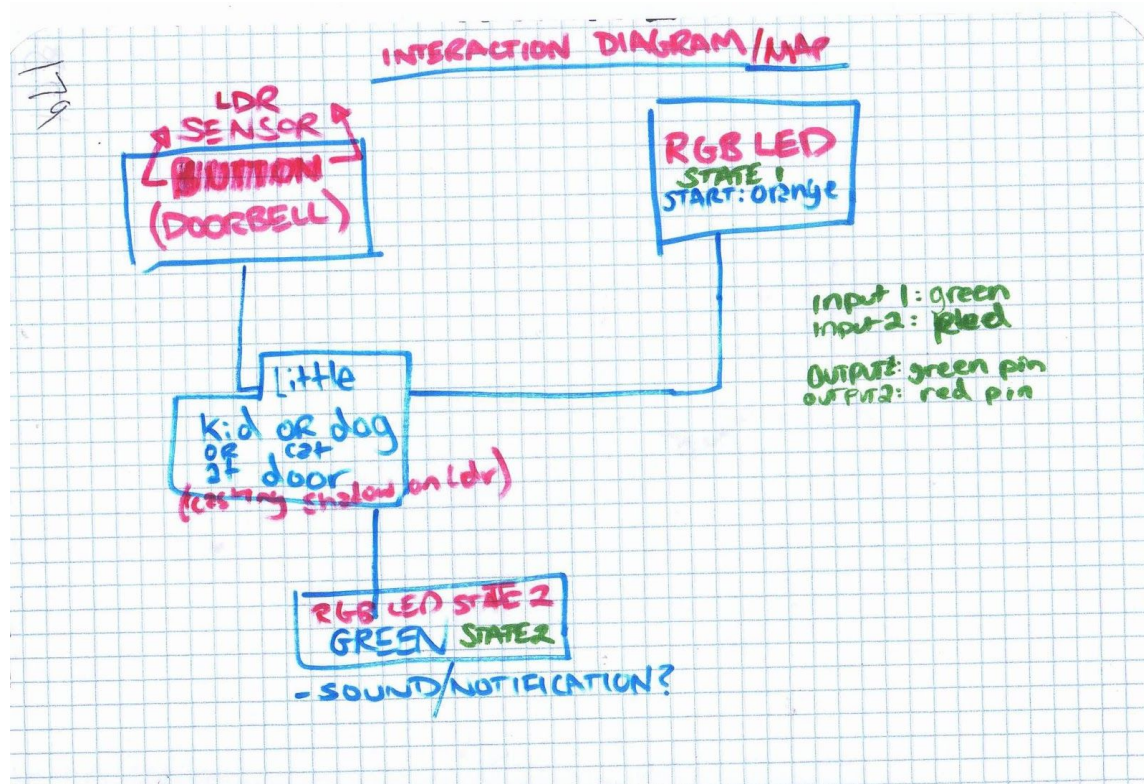 INTERACTION DIAGRAM/MAP
LDR
SENSOR
BUTTON
(DOORBELL)
RGB LED
STATE 1
START: orange
input 1: green
input 2: red
OUTPUT: green pin
OUTPUT2: red pin
Little
kid OR dog
OR cat
at door
(casting shadow on ldr)
RGB LED STATE 2
GREEN STATE2
- SOUND/NOTIFICATION?